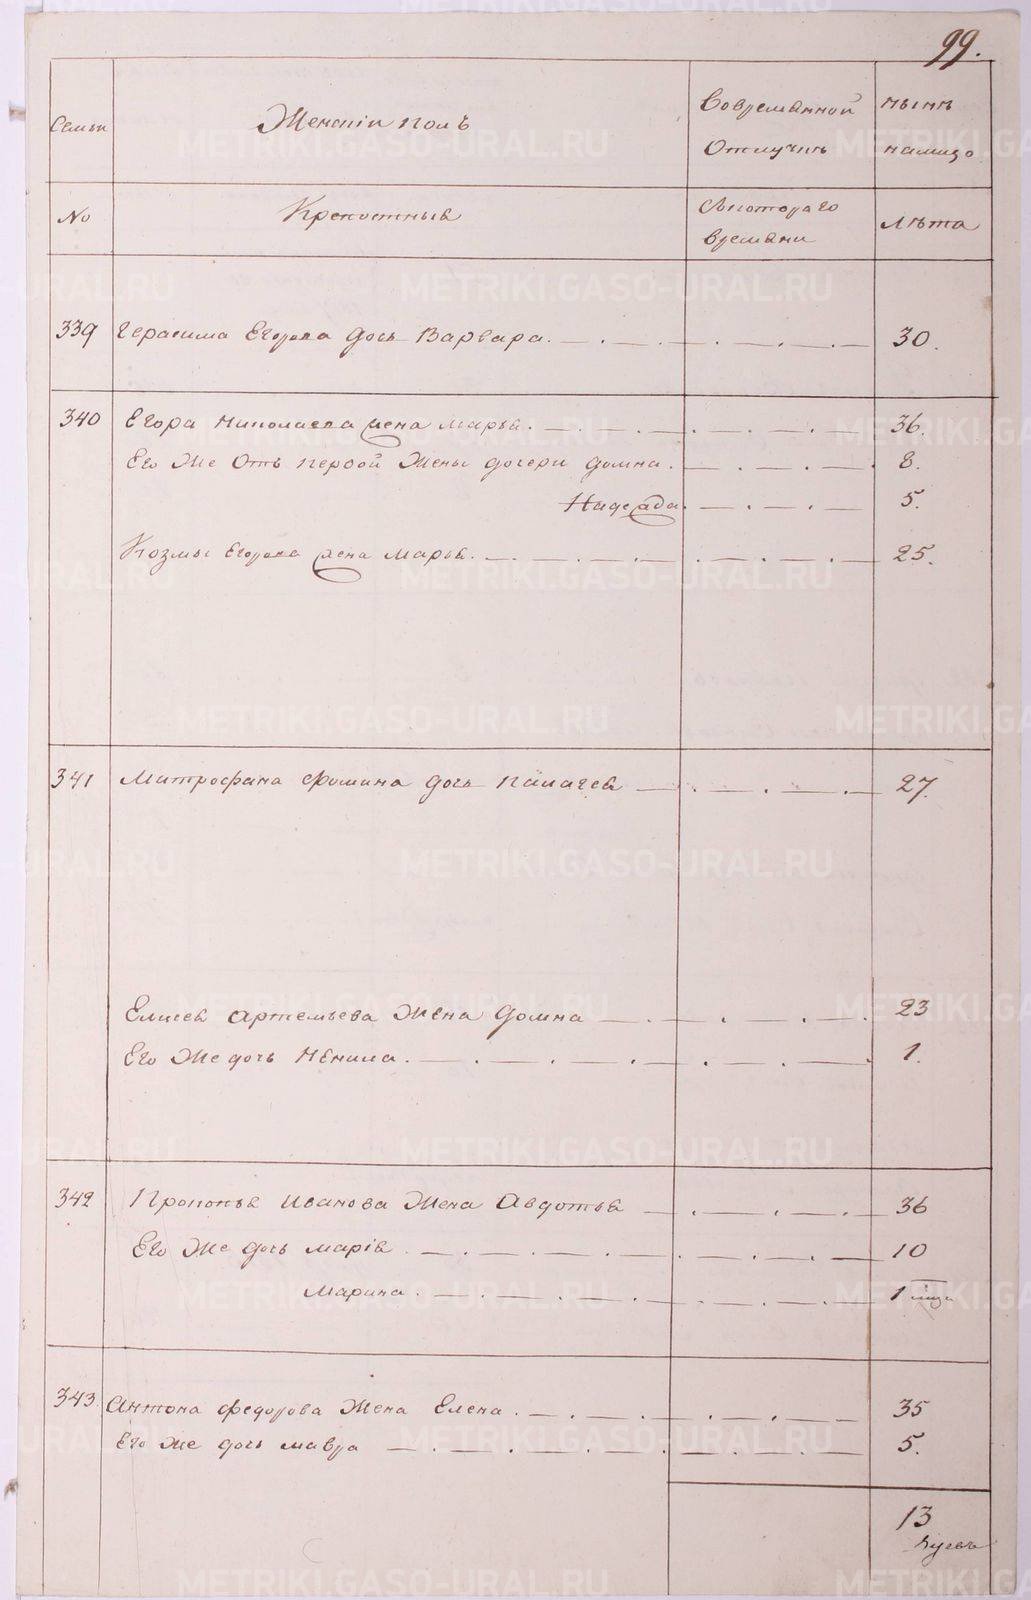 99.
Семьи
Женскiй полъ
Во временной
Отлучкѣ
Нынѣ
на лицо
No
Крепостныя
Съ котораго
времяни
Лѣта
339 Герасима Егорова дочь Варвара. 30.
340 Егора Николаева жена Марья. 36.
Его Же Отъ первой Жены дочери Домна. 8.
Надежда. 5.
Козмы Егорова жена Марья. 25.
341 Митрофана Фомина дочь Палагея 27.
Елисея Артемьева Жена Домна 23
Его Же дочь Ненила. 1.
342 Прокопья Иванова Жена Авдотья 36
Его Же дочь Марiя. 10
Марина. 1
343. Антона Федорова Жена Елена. 35
Его Же дочь Мавра 5.
13
душъ
METRIKI.GASO-URAL.RU